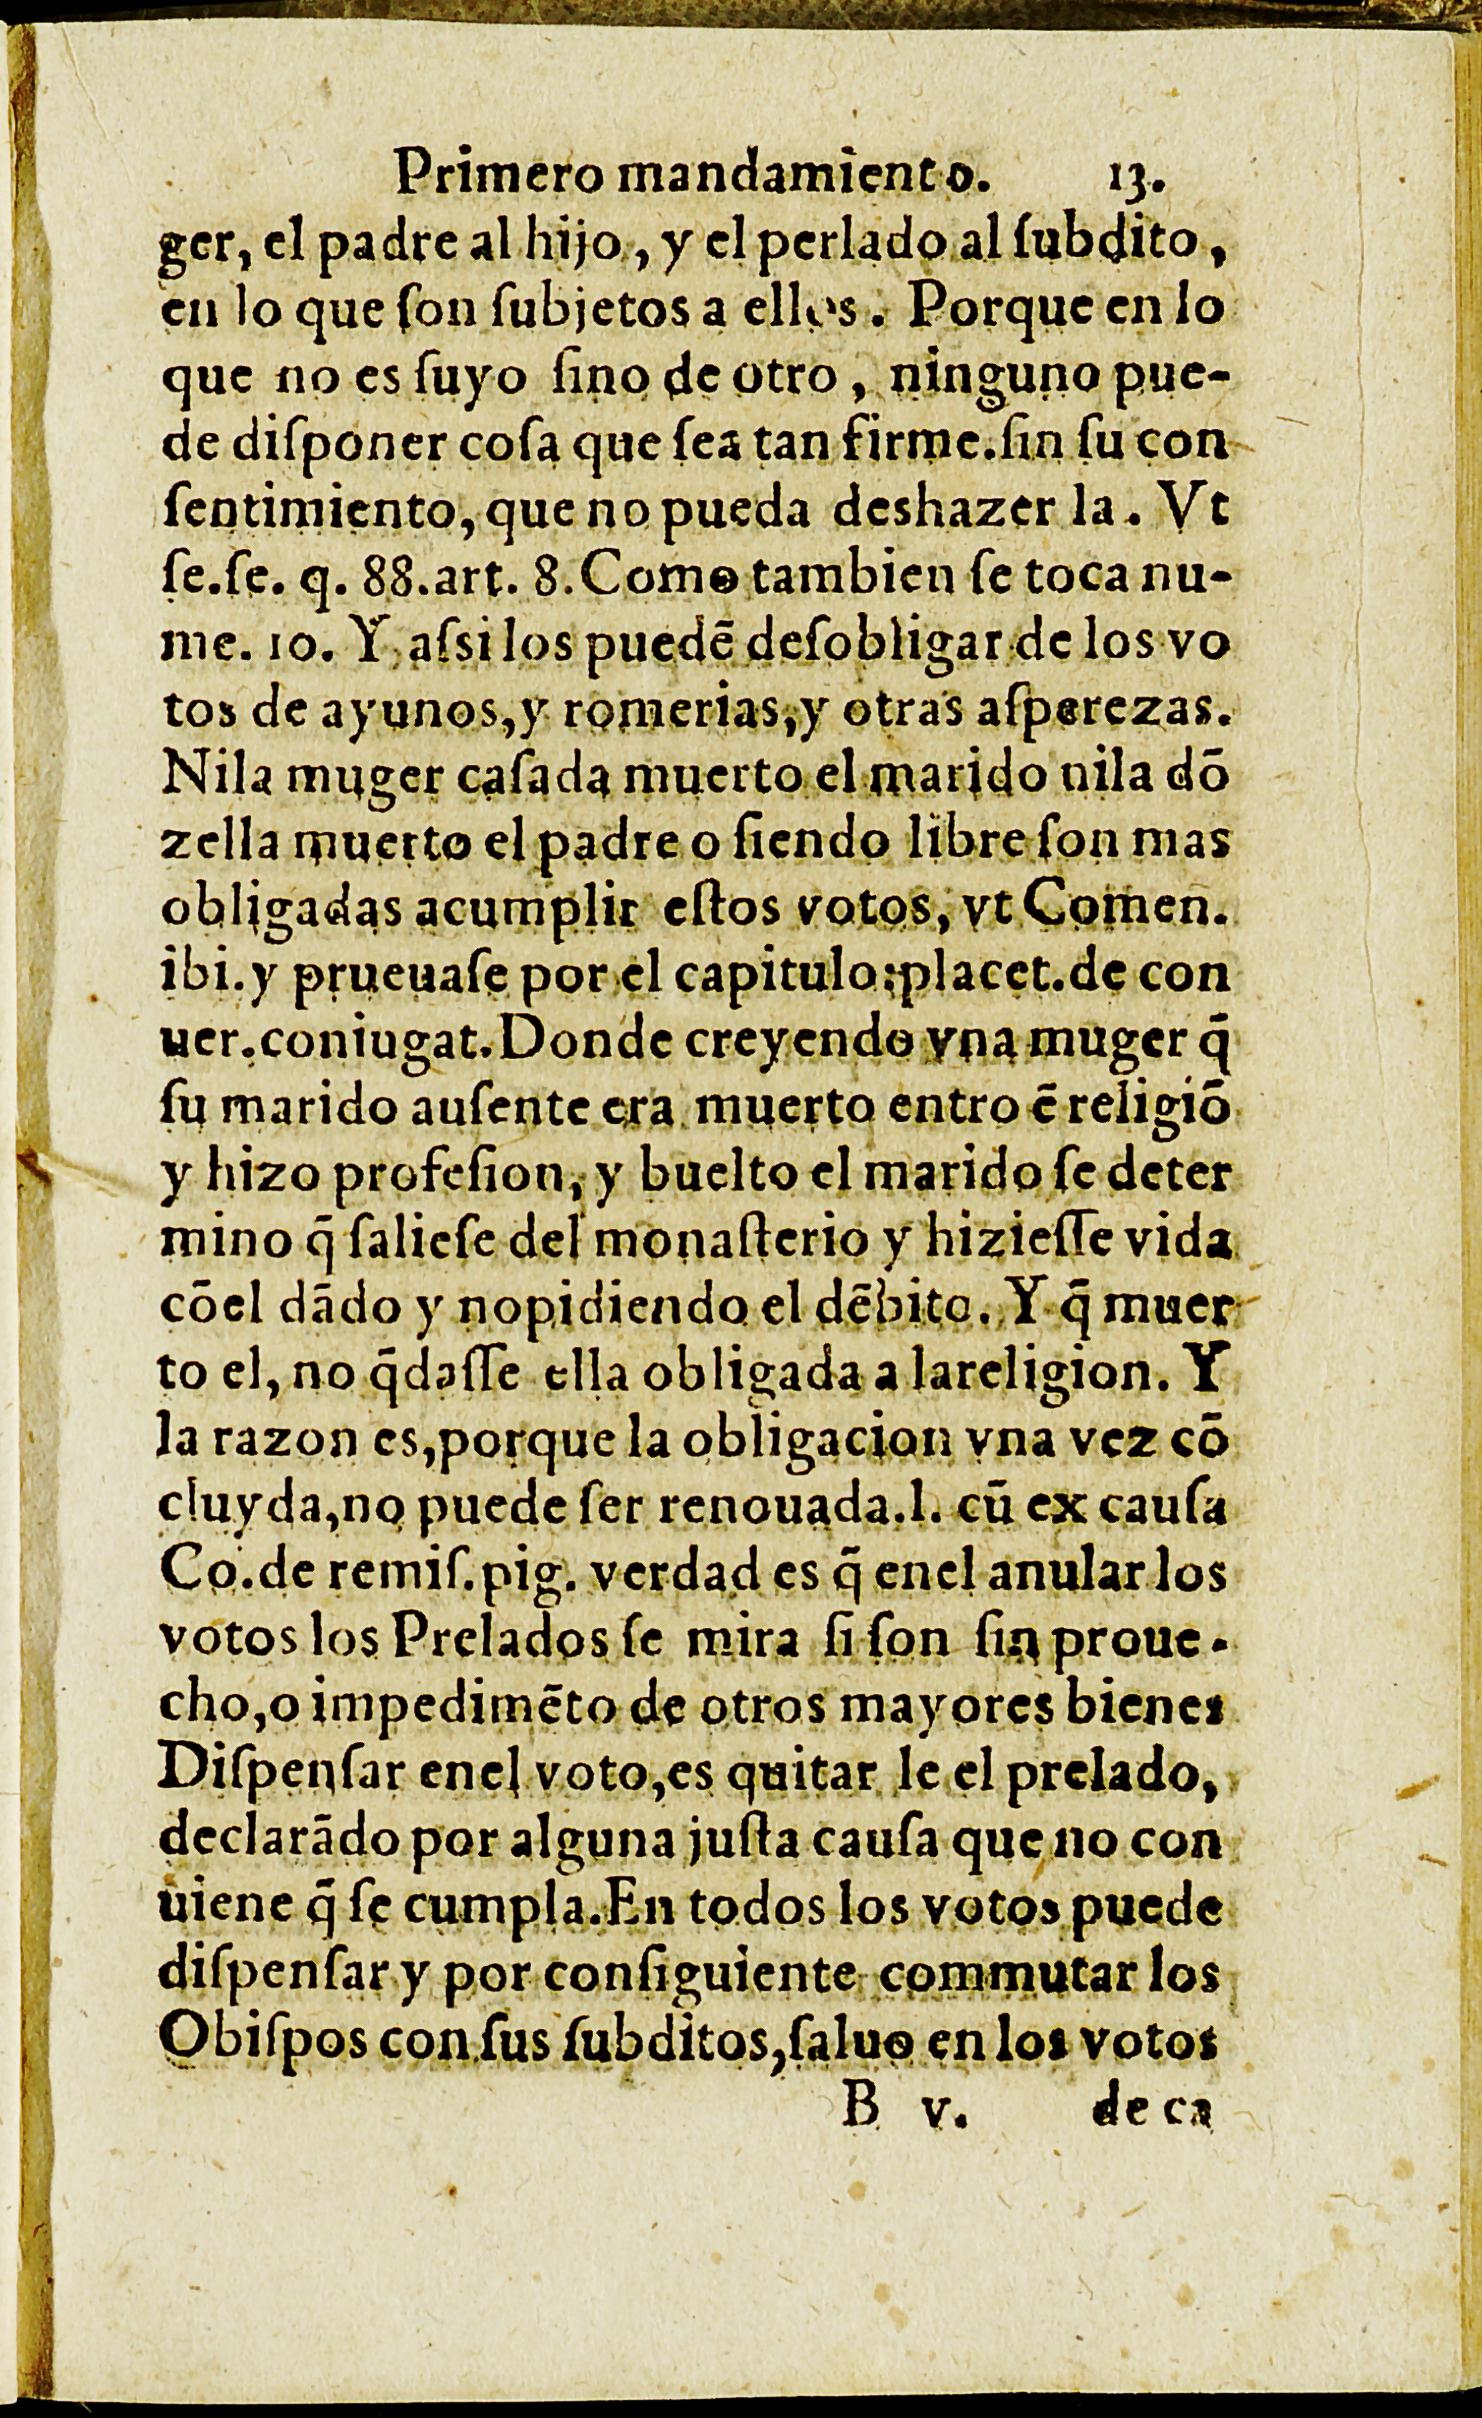 Primero mandamiento. 13.
ger, el padre al hijo, y el perlado al ſubdito,
en lo que ſon ſubjetos a ellos. Porque en lo
que no es ſuyo ſino de otro, ninguno pue-
de diſponer coſa que ſea tan firme.ſin ſu con
ſentimiento, que no pueda deshazer la. Vt
ſe.ſe. q. 88.art. 8.Como tambien ſe toca nu-
me. 10. Y aſsi los puedē deſobligar de los vo
tos de ayunos,y romerias,y otras aſperezas.
Nila muger caſada muerto el marido nila dō
zella muerto el padre o ſiendo libre ſon mas
obligadas acumplir eſtos votos, vt Comen.
ibi.y prueuaſe por el capitulo:placet.de con
uer.coniugat.Donde creyendo vna muger q̄
ſu marido auſente era muerto entro ē religiō
y hizo profeſion, y buelto el marido ſe deter
mino q̄ ſalieſe del monaſterio y hizieſſe vida
cōel dādo y nopidiendo el dēbito. Y q̄ muer
to el, no q̄daſſe ella obligada a lareligion. Y
la razon es,porque la obligacion vna vez cō
cluyda,no puede ſer renouada.l. cū ex cauſa
Co.de remiſ.pig. verdad es q̄ enel anular los
votos los Prelados ſe mira ſi ſon ſin proue-
cho,o impedimēto de otros mayores bienes
Diſpenſar enel voto,es quitar le el prelado,
declarādo por alguna juſta cauſa que no con
uiene q̄ ſe cumpla.En todos los votos puede
diſpenſar y por conſiguiente commutar los
Obiſpos con ſus ſubditos,ſaluo en los votos
B v. de ca